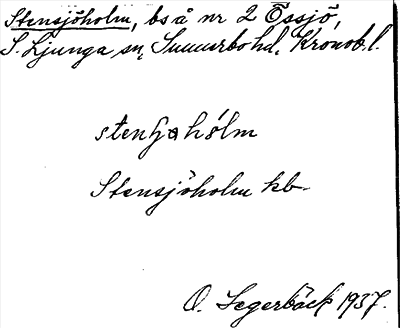 Stensjöholm, bs å nr 2 Össjö,
S. Ljunga sn, Sunnerbo hd, Kronob. l.
Stensjöholm kb.
O. Segerbäck 1937.